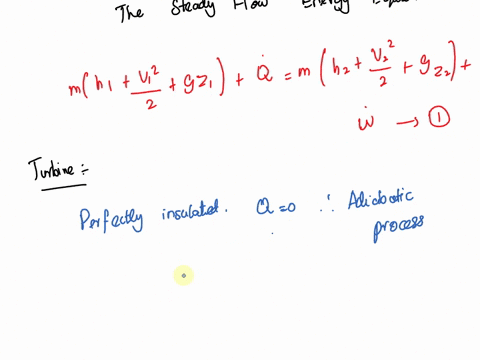 The Steady Flow Energy
m(h₁ + V₁²/2 + gz₁) + Q̇ = m(h₂ + V₂²/2 + gz₂) +
ẇ → ①
Turbine :-
Perfectly insulated. Q = 0 ∴ Adiabatic
process